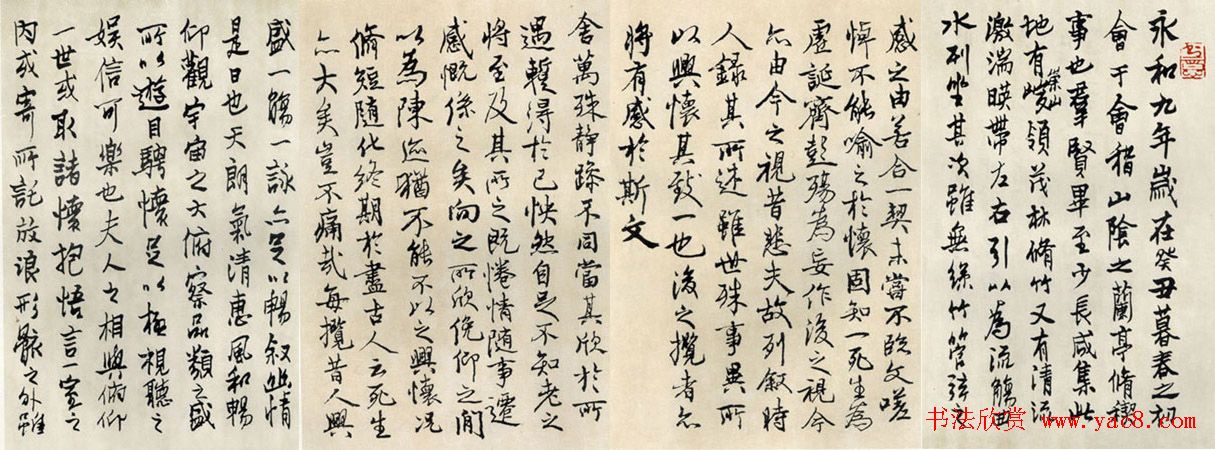 永和九年歲在癸丑暮春之初
會于會稽山陰之蘭亭脩稧
事也羣賢畢至少長咸集此
地有崇山峻領茂林脩竹又有清流
激湍暎帶左右引以為流觴曲
水列坐其次雖無絲竹管弦之
盛一觴一詠亦足以暢叙幽情
是日也天朗氣清惠風和暢
仰觀宇宙之大俯察品類之盛
所以遊目騁懷足以極視聽之
娛信可樂也夫人之相與俯仰
一世或取諸懷抱悟言一室之
內或寄所託放浪形骸之外雖
舍萬殊靜躁不同當其欣於所
遇蹔得於己怏然自足不知老之
將至及其所之既惓情隨事遷
感慨係之矣向之所欣俛仰之閒
以為陳迹猶不能不以之興懷況
脩短隨化終期於盡古人云死生
亦大矣豈不痛哉每攬昔人興
感之由若合一契未嘗不臨文嗟
悼不能喻之於懷固知一死生為
虛誕齊彭殤為妄作後之視今
亦由今之視昔悲夫故列敘時
人錄其所述雖世殊事異所
以興懷其致一也後之攬者亦
將有感於斯文
书法欣赏 www.yac8.com